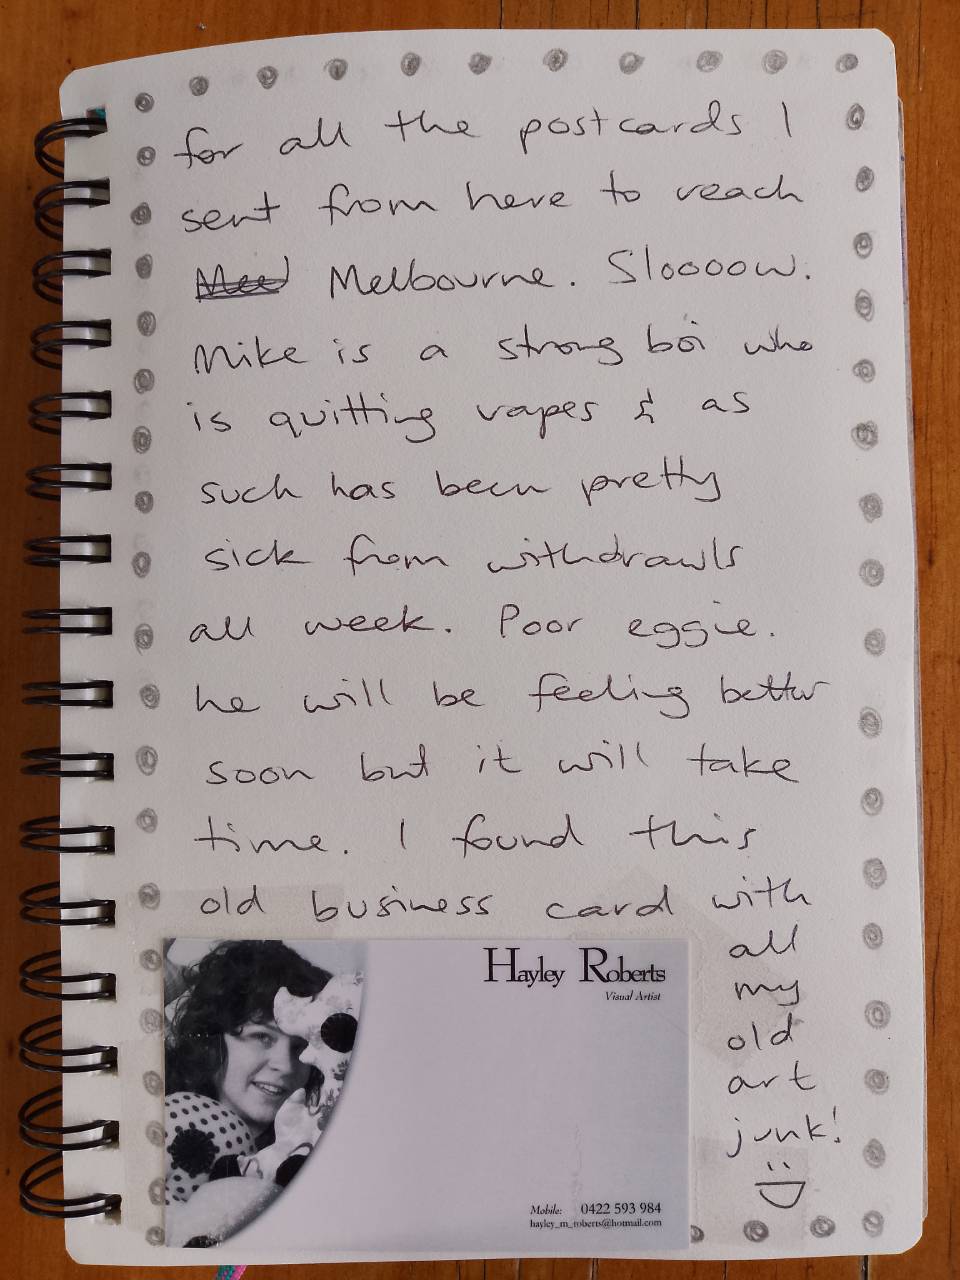 for all the postcards I
sent from here to reach
Melbourne. Sloooow.
Mike is a strong boi who
is quitting vapes & as
such has been pretty
sick from withdrawls
all week. Poor eggie.
he will be feeling better
soon but it will take
time. I found this
old business card with
all
my
old
art
junk!
Hayley Roberts
Visual Artist
Mobile: 0422 593 984
hayley_m_roberts@hotmail.com